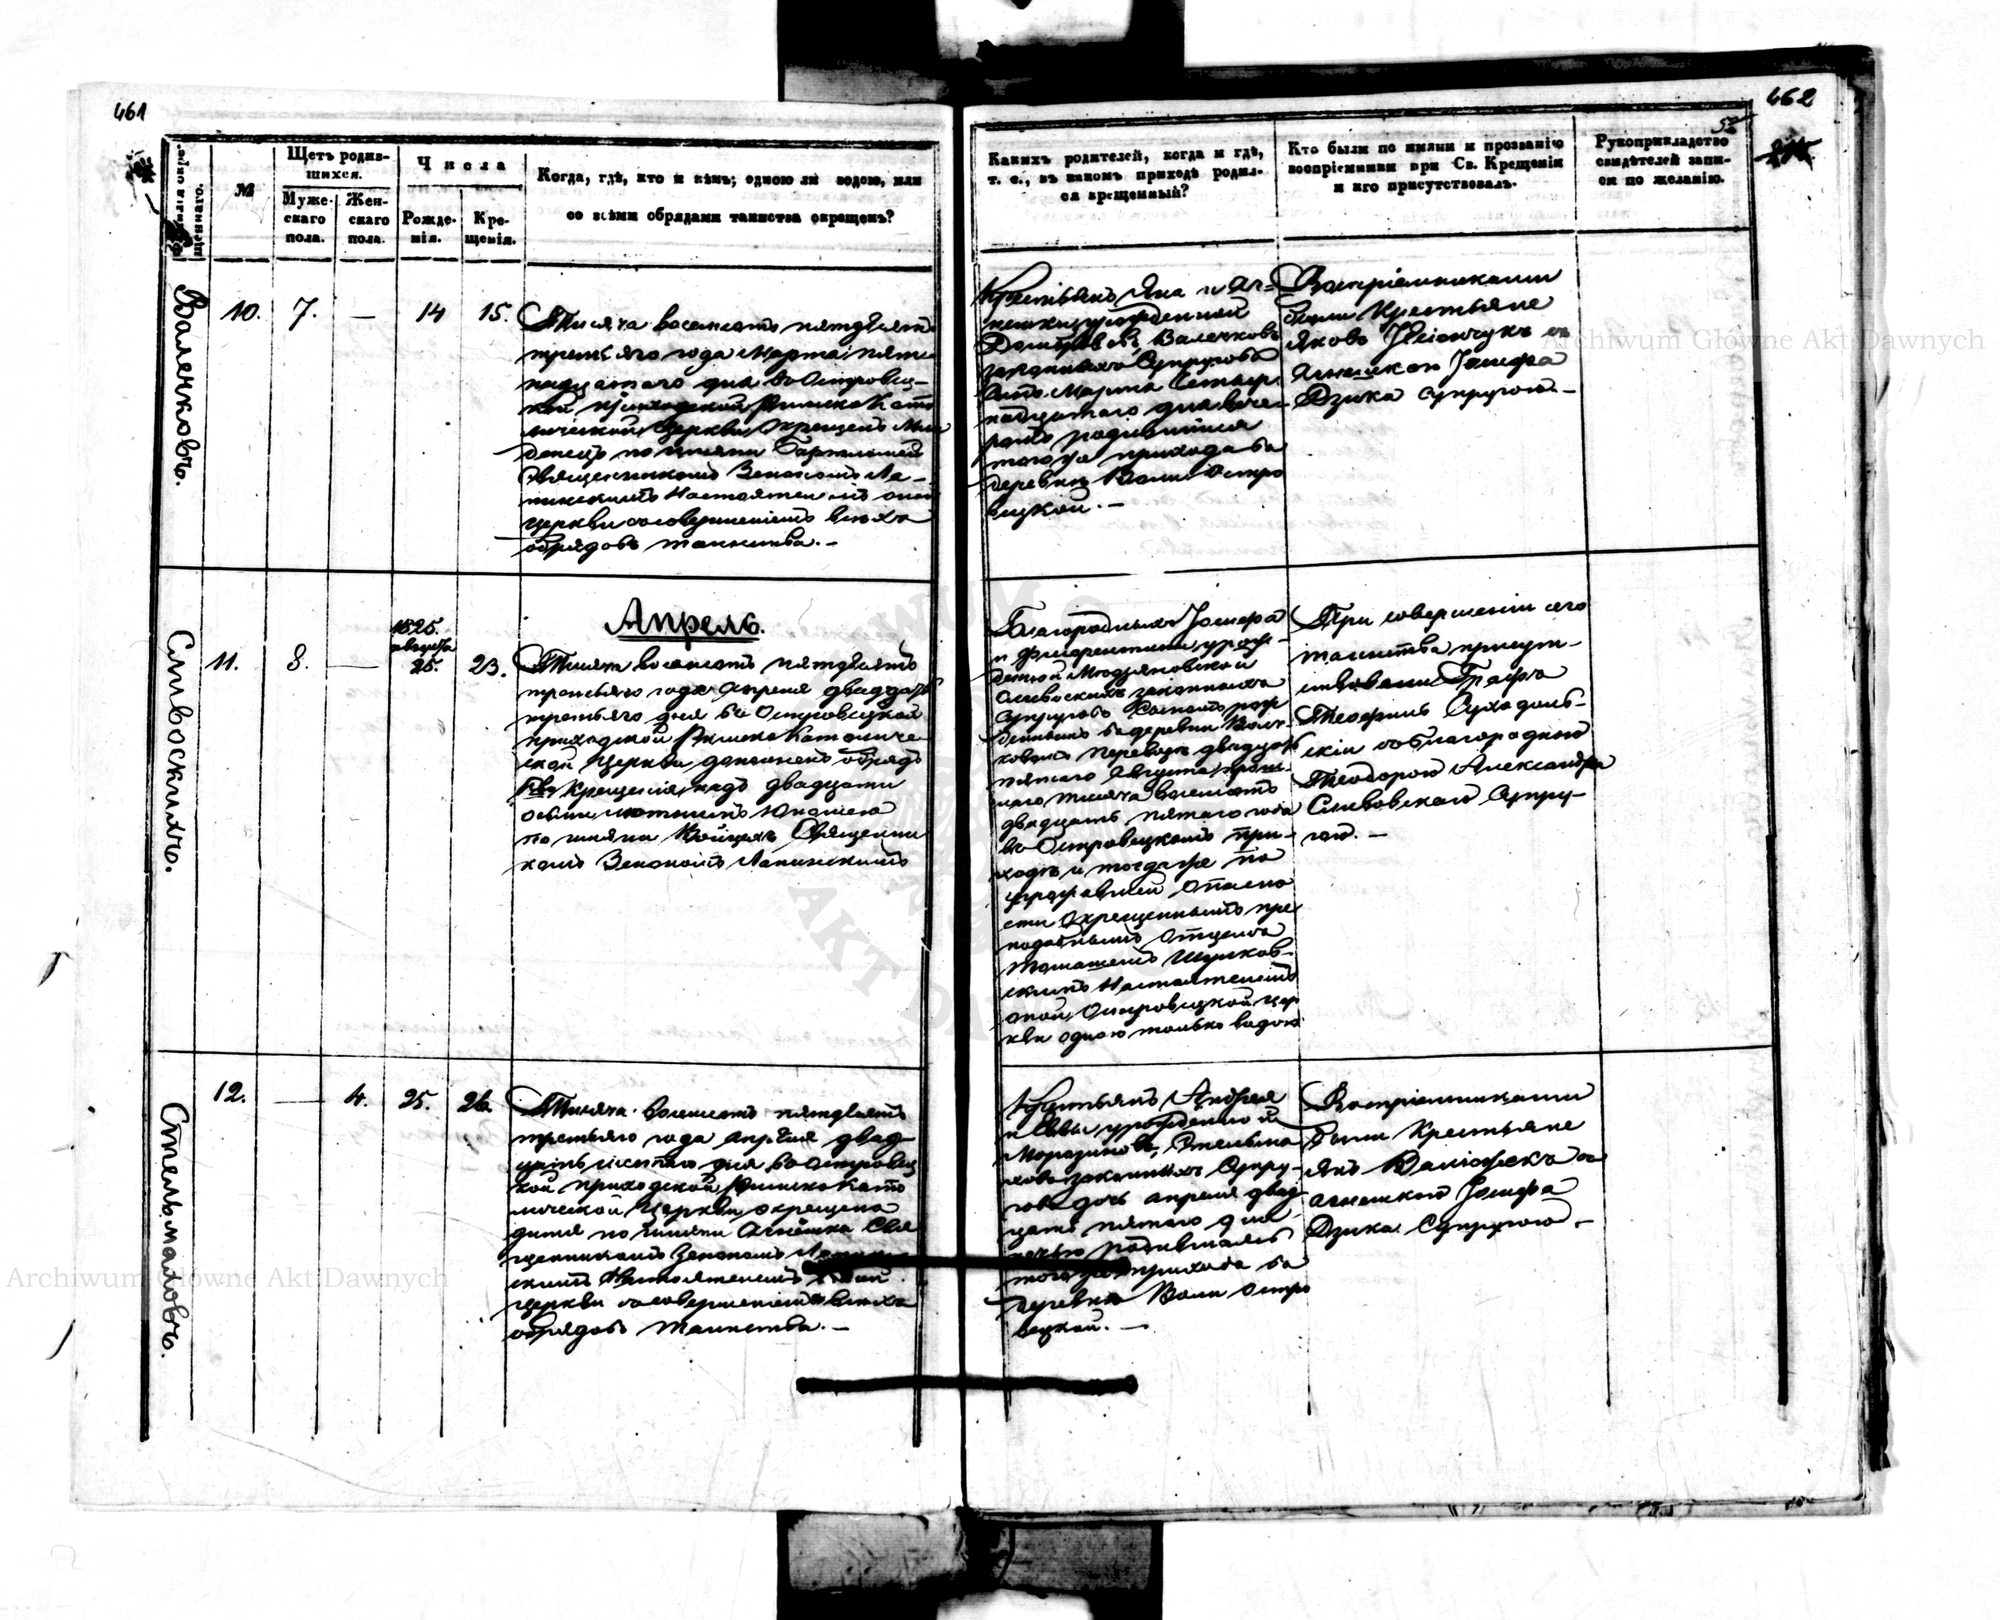 461
№
Щетъ родив-
шихся.
Муже-
скаго
пола.
Жен-
скаго
пола.
Числа
Рожде-
нія.
Кре-
щенія.
Когда, гдѣ, кто и кѣмъ; одною ли водою, или
со всѣми обрядами таинства окрещенъ?
Валенковъ.
10.
7.
—
14
15.
Тысяча восемсотъ пятдѣсятъ
третьяго года Марта пятна
надцатаго дня въ Островец-
кой приходской Римско Като
лической Церкви окрещенъ Мла
денецъ по имени
Священникомъ Зенономъ Ла-
пинскимъ Настоятелемъ оной
церкви со совершеніемъ всѣхъ
обрядовъ таинства. —
Апрель.
Сливоскихъ.
11.
8.
—
1825.
августа
25.
23.
Тысяча восемсотъ пятдѣсятъ
третьяго года Апреля двадцать
третьяго дня въ Островецкой
приходской Римско Католиче-
ской Церкви дополненъ обрядъ
Св. Крещенія надъ двадцати
осьми лѣтнымъ Юношею
по имени Войцехъ Священни
комъ Зенономъ Лапинскимъ
Стельмаховъ.
12.
—
4.
25.
26.
Тысяча восемсотъ пятдѣсятъ
третьяго года Апреля двад-
цать шестаго дня въ Островец
кой приходской Римско Като
лической Церкви окрещена
дитя по имени Агнешка Свя
щенникомъ Зенономъ Лапин
скимъ Настоятелемъ оной
церкви со совершеніемъ всѣхъ
обрядовъ таинства. —
462
52
Какихъ родителей, когда и гдѣ,
т. е., въ какомъ приходѣ родил-
ся крещенный?
Кто были по имяни и прозванію
воспріемники при Св. Крещеніи
и кто присутствовалъ.
Рукоприкладство
свидѣтелей запи-
си по желанію.
Крестьянъ Яна и Аг-
нешки урожденной
Валенковъ
законныхъ Супруговъ
сынъ Марта Четыр
надцатаго дня
родившійся
того жъ прихода въ
деревнѣ Воли Остро
вецкой. —
Воспріемниками
были Крестьяне
Яковъ съ
Агнешкою Іосифа
Дзика супругою —
Благородныхъ Іосифа
и Флорентины урож-
денной
Сливоскихъ законныхъ
Супруговъ Сынъ рож
денный въ деревни
Перевозъ двадцать
пятаго Августа прош-
лаго тысяча восемсотъ
двадцать пятаго года
въ Островецкомъ при-
ходѣ и тогда же по
угрожавшей опасно
сти окрещенный пре
подобнымъ Отцемъ
Томашемъ
скимъ Настоятелемъ
оной Островецкой цер
кви одною только водою
При совершеніи сего
таинства присут-
ствовали Графъ
Теофилъ Суходоль-
скій съ благородною
Теодорою Александра
Сливовскаго Супру-
гою. —
Крестьянъ Андрея
и Евы урожденной
Стельма
ховъ законныхъ Супру-
говъ дочь апреля двад
цать пятаго дня
ночью родившаясь
того жъ прихода въ
деревнѣ Воли Остро
вецкой. —
Воспріемниками
были Крестьяне
Янъ съ
Агнешкою Іосифа
Дзика Супругою —
Archiwum Główne Akt Dawnych
Archiwum Główne Akt Dawnych